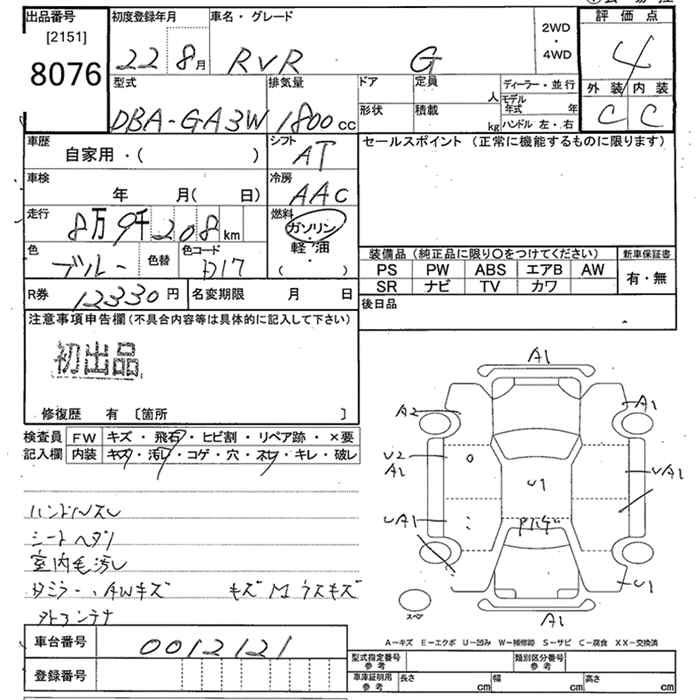 出品番号 初度登録年月 車名・グレード 2WD・4WD 評価点
[2151]
8076 22 8月 RVR G 4
型式 排気量 ドア 定員 人 ディーラー・並行 外装 内装
DBA-GA3W 1800cc 形状 積載 kg モデル年式 年 ハンドル 左・右 C C
車歴 自家用・( ) シフト AT セールスポイント (正常に機能するものに限ります)
車検 年 月( 日) 冷房 AAC
走行 8万9千208km 燃料 ガソリン・軽油・( )
色 ブルー 色替 色コード D17 装備品 (純正品に限り○をつけてください) 新車保証書
PS PW ABS エアB AW 有・無
SR ナビ TV カワ
R券 12330円 名変期限 月 日 後日品
注意事項申告欄 (不具合内容等は具体的に記入して下さい)
初出品
修復歴 有 〔箇所 〕
検査員 FW キズ・飛石・ヒビ割・リペア跡・×要
記入欄 内装 キズ・汚レ・コゲ・穴・スレ・キレ・破レ
ハンドルスレ
シートヘタリ
室内毛汚し
AWキズ キズ M ウスキズ
外トコンテナ
A1
A2 A1
U2
A1 U1 UA1
UA1
U1
スペア
A1
A-キズ E-エクボ U-凹み W-補修跡 S-サビ C-腐食 XX-交換済
車台番号 0012121
登録番号
型式指定番号 参考 類別区分番号 参考
車庫証明用 参考 長さ cm 幅 cm 高さ cm